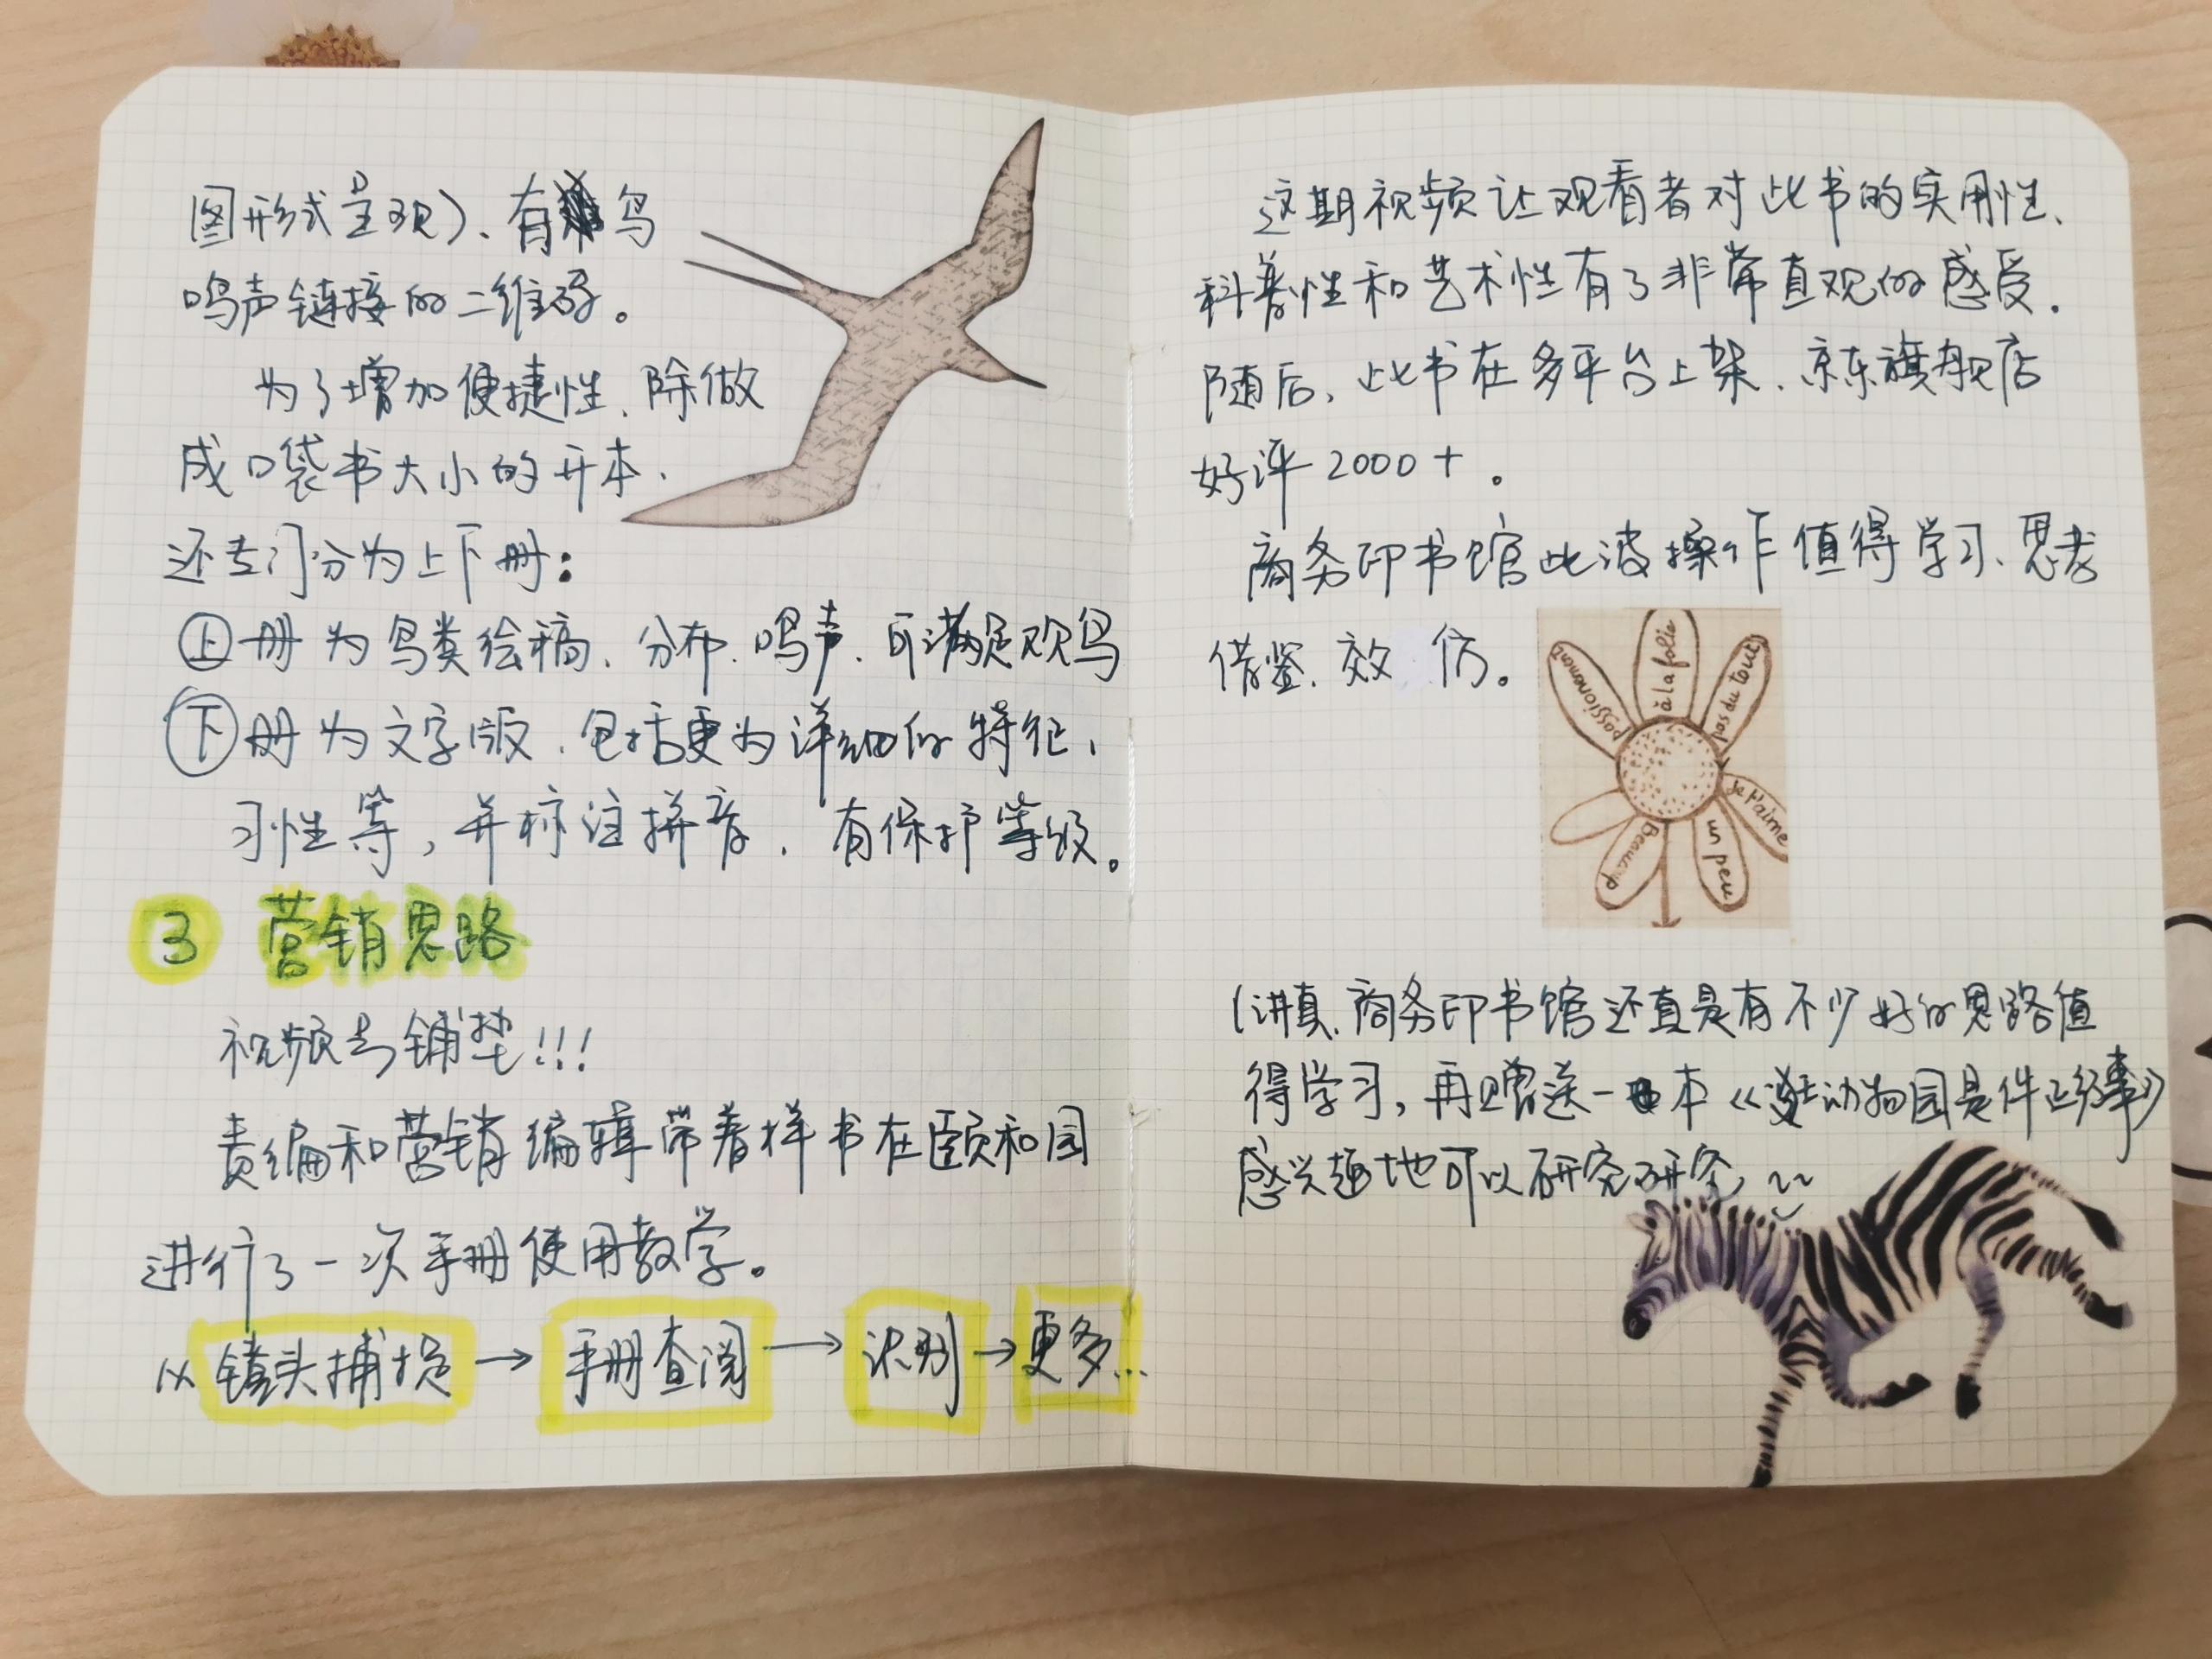 图形式呈现)、有鸟
鸣声链接的二维码。
为了增加便捷性、除做
成口袋书大小的开本、
还专门分为上下册：
上册为鸟类绘稿、分布、鸣声、可满足观鸟
下册为文字版、包括更为详细的特征、
习性等，并标注拼音、有保护等级。
3 营销思路
视频与铺垫!!!
责编和营销编辑带着样书在颐和园
进行了一次手册使用教学。
从 镜头捕捉 → 手册查阅 → 识别 → 更多...
这期视频让观看者对此书的实用性、
科普性和艺术性有了非常直观的感受.
随后，此书在多平台上架、京东旗舰店
好评2000+。
商务印书馆此波操作值得学习、思考
借鉴、效仿。
passionnément
à la folie
pas du tout
Je t'aime
un peu
Beaucoup
(讲真、商务印书馆还真是有不少好的思路值
得学习，再赠送一本《逛动物园是件正经事》
感兴趣地可以研究研究~~